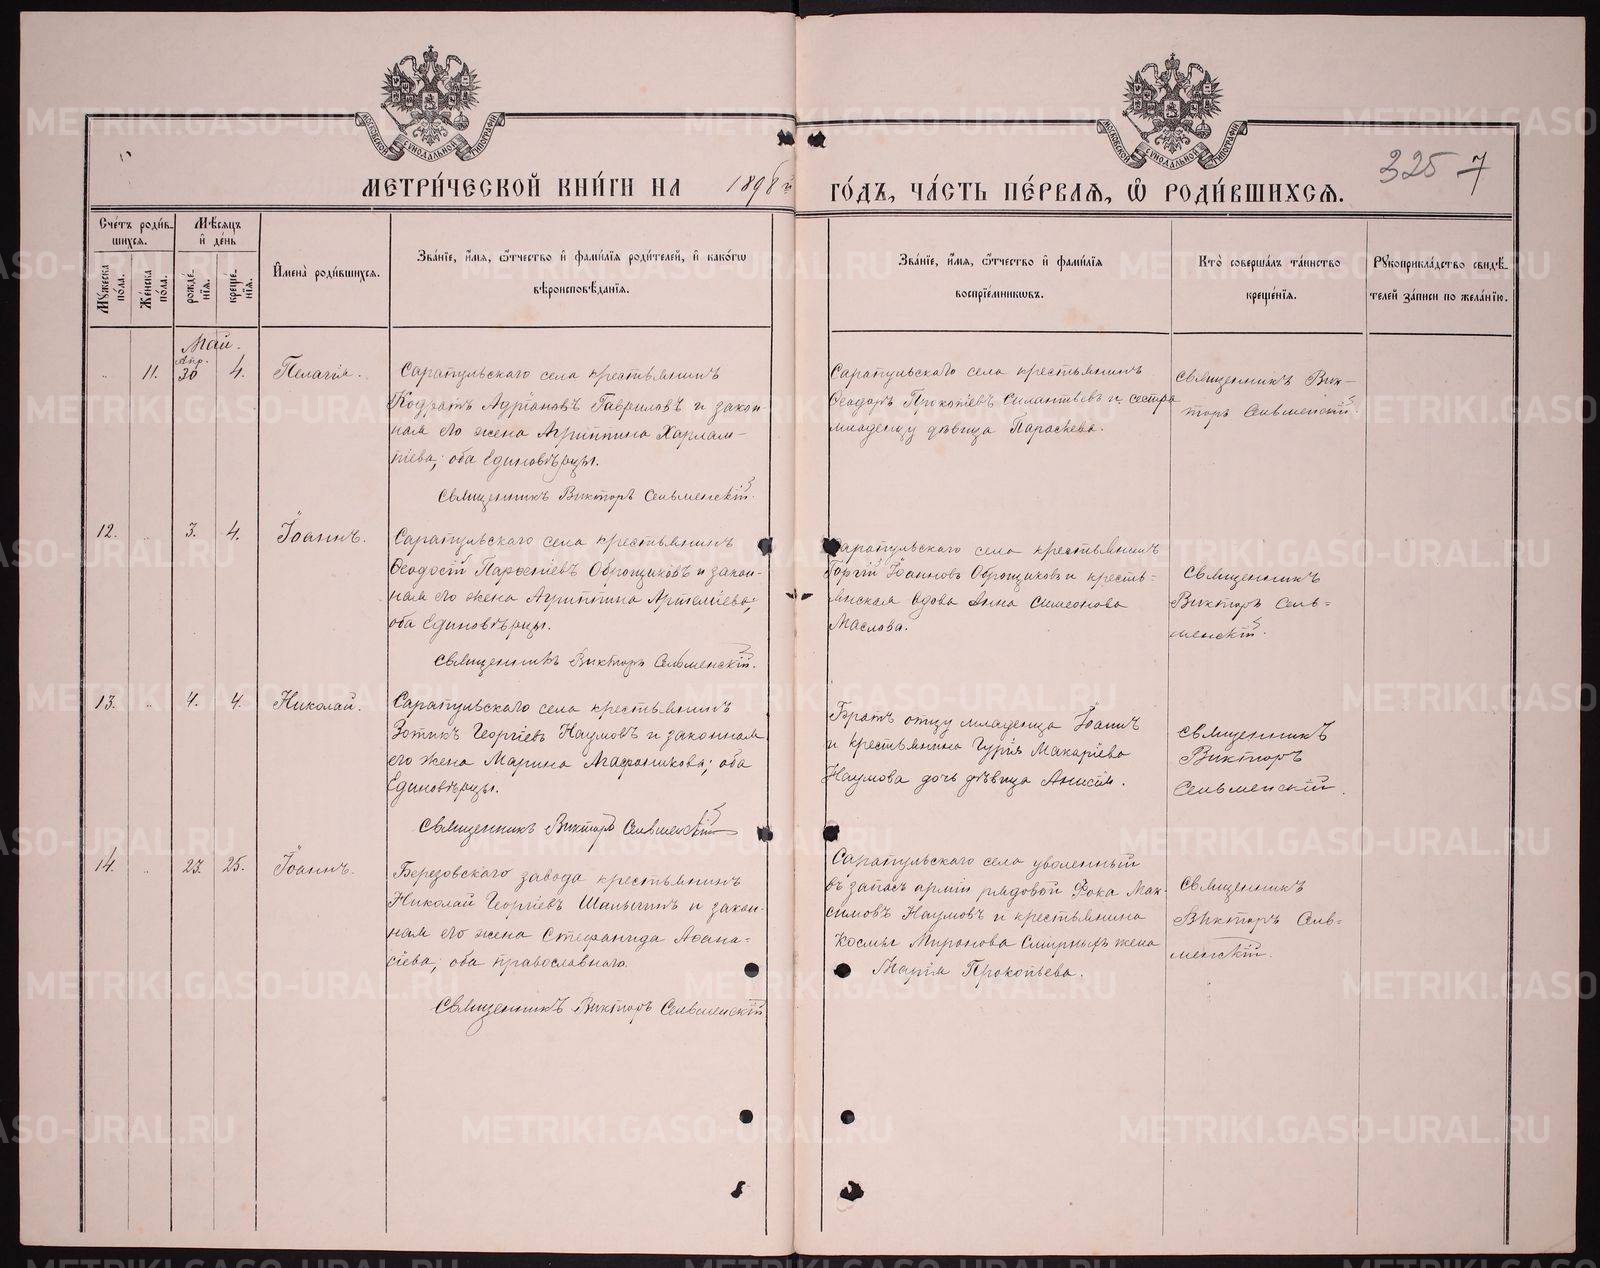 МОСКОВСКОЙ СѴНОДАЛЬНОЙ ТИПОГРАФІИ
МОСКОВСКОЙ СѴНОДАЛЬНОЙ ТИПОГРАФІИ
325 7
МЕТРИ́ЧЕСКОЙ КНИ́ГИ НА 1898 й ГО́ДЪ, ЧА́СТЬ ПЕ́РВАѦ, Ѽ РОДИ́ВШИХСѦ.
Сче́тъ роди́в-
шихсѧ.
Мѣ́сѧцъ
и҆ де́нь
Мꙋ́жеска
по́ла.
Же́нска
по́ла.
рожде́-
нїѧ.
креще́-
нїѧ.
И҆мена̀ роди́вшихсѧ.
Зва́нїе, и҆́мѧ, ѻ҆́тчество и҆ фами́лїѧ роди́телей, и҆ како́гѡ
вѣроисповѣ́данїѧ.
Зва́нїе, и҆́мѧ, ѻ҆́тчество и҆ фами́лїѧ
воспрїе́мниковъ.
Кто̀ соверша́лъ та́инство
креще́нїѧ.
Рꙋкоприкла́дство свидѣ́-
телей за́писи по жела́нїю.
Май.
Апр.
11. 30 4. Пелагія.
Сарапульскаго села крестьянинъ
Кодратъ Адріановъ Гавриловъ и закон-
ная его жена Агриппина Харлам-
піева; оба Единовѣрцы.
Священникъ Викторъ Сельменскій.
Сарапульскаго села крестьянинъ
Ѳеодоръ Прокопіевъ Силантьевъ и сестра
младенцу дѣвица Параскева.
Священникъ Вик-
торъ Сельменскій.
12. 3. 4. Іоаннъ.
Сарапульскаго села крестьянинъ
Ѳеодосій Парѳеніевъ Оброщиковъ и закон-
ная его жена Агриппина
оба Единовѣрцы.
Священникъ Викторъ Сельменскій.
Сарапульскаго села крестьянинъ
Іоанновъ Оброщиковъ и кресть-
янская вдова Анна Симеонова
Маслова.
Священникъ
Викторъ Сель-
менскій.
13. 4. 4. Николай.
Сарапульскаго села крестьянинъ
Зотикъ Георгіевъ Наумовъ и законная
его жена Марина Агафоникова; оба
Единовѣрцы.
Священникъ Викторъ Сельменскій
Братъ отцу младенца Іоаннъ
и крестьянина Гурія Макаріева
Наумова дочь дѣвица Анисія.
Священникъ
Викторъ
Сельменскій.
14. 23. 25. Іоаннъ.
Березовскаго завода крестьянинъ
Николай Георгіевъ и закон-
ная его жена Стефанида Аѳана-
сіева; оба православнаго.
Священникъ Викторъ Сельменскій
Сарапульскаго села уволенный
въ запасъ арміи рядовой Фока Мак-
симовъ Наумовъ и крестьянина
Космы Миронова Смирныхъ жена
Марія Прокопьева.
Священникъ
Викторъ Сель-
менскій.
METRIKI.GASO-URAL.RU